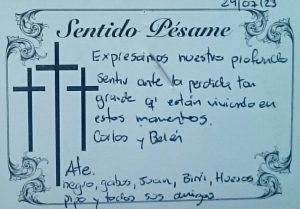 24/07/23
Sentido Pésame
Expresamos nuestro profundo
sentir ante la perdida tan
grande q' están viviendo en
estos momentos.
Carlos y Belén
Ate.
negro, gabos, Juan, Birri, Huesos,
pipo y todos sus amigos